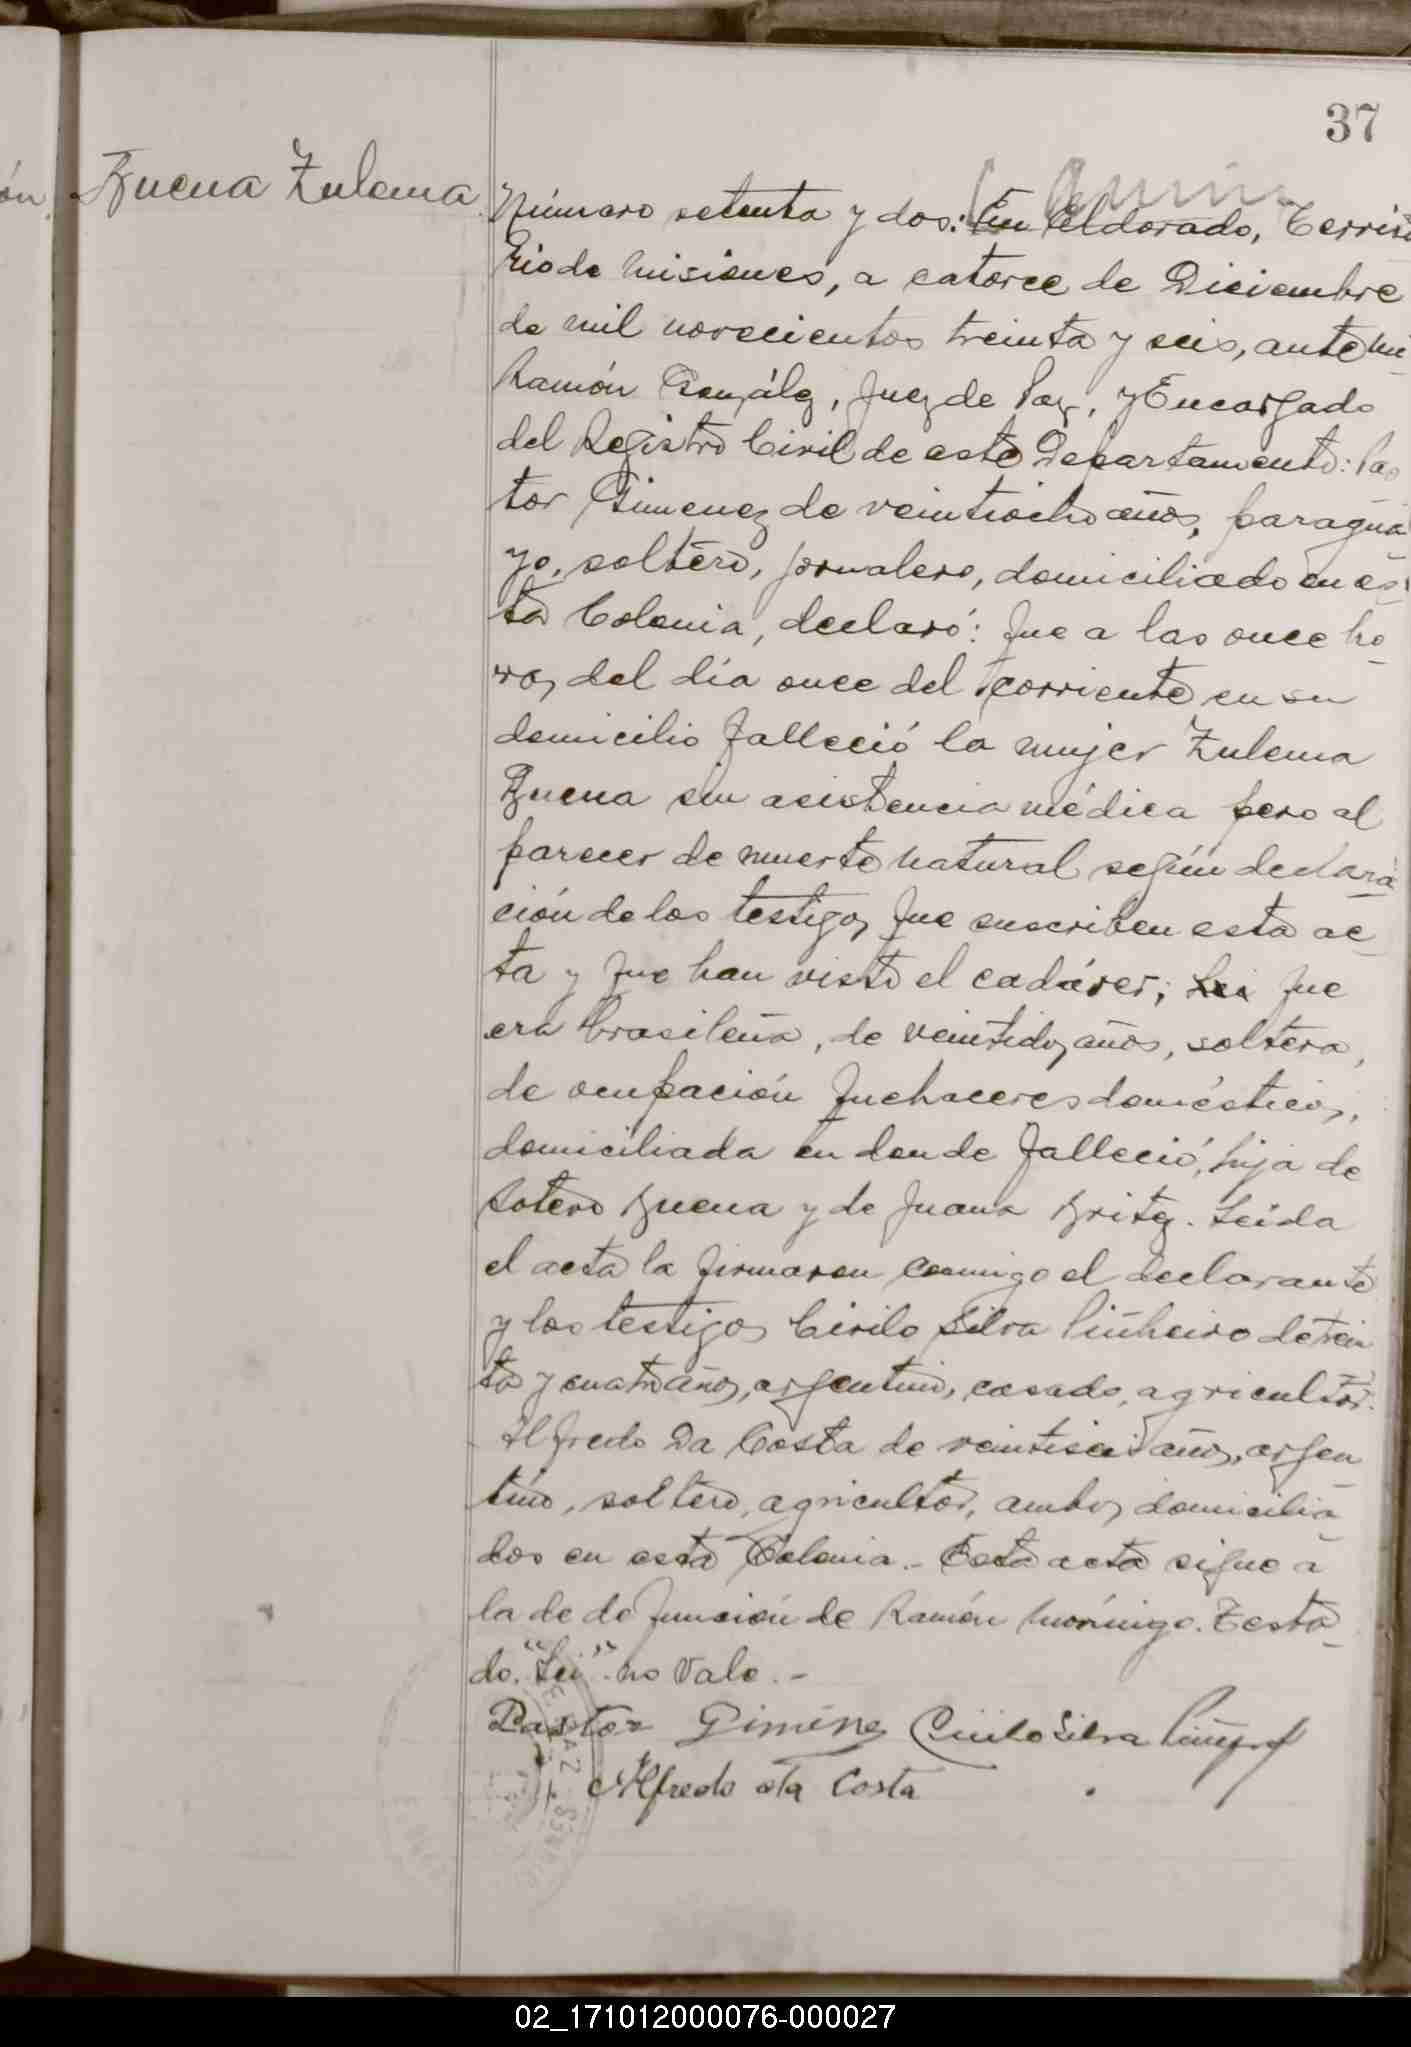 37
Buena Zulema
Número setenta y dos: En Eldorado, Territo
rio de Misiones, a catorce de Diciembre
de mil novecientos treinta y seis, ante mi
Ramón Gonzálz, Juez de Paz, y Encargado
del Registro Civil de este Departamento: Pas
tor Gimenez de veintiocho años, paragua
yo, soltero, jornalero, domiciliado en es
ta Colonia, declaró: Que a las once ho
ras del día once del corriente en su
domicilio falleció la mujer Zulema
Buena sin asistencia médica pero al
parecer de muerte natural según declara
ción de los testigos que suscriben esta ac
ta y que han visto el cadáver; Lei que
era brasileña, de veintidos años, soltera,
de ocupación quehaceres domésticos,
domiciliada en donde falleció, hija de
Sotero Buena y de Juana Britz. Leída
el acta la firmaron conmigo el declarante
y los testigos Cirilo Silva Piñheiro de trein
ta y cuatro años, argentino, casado, agricultor.
Alfredo Da Costa de veintiseis años, argen
tino, soltero, agricultor, ambos domicilia
dos en esta Colonia.- Esta acta sigue a
la de defunción de Ramón Morínigo. Testa
do. "Lei" no vale.-
Pastor Giménez Cirilo Silva
Alfredo da Costa
02_171012000076-000027